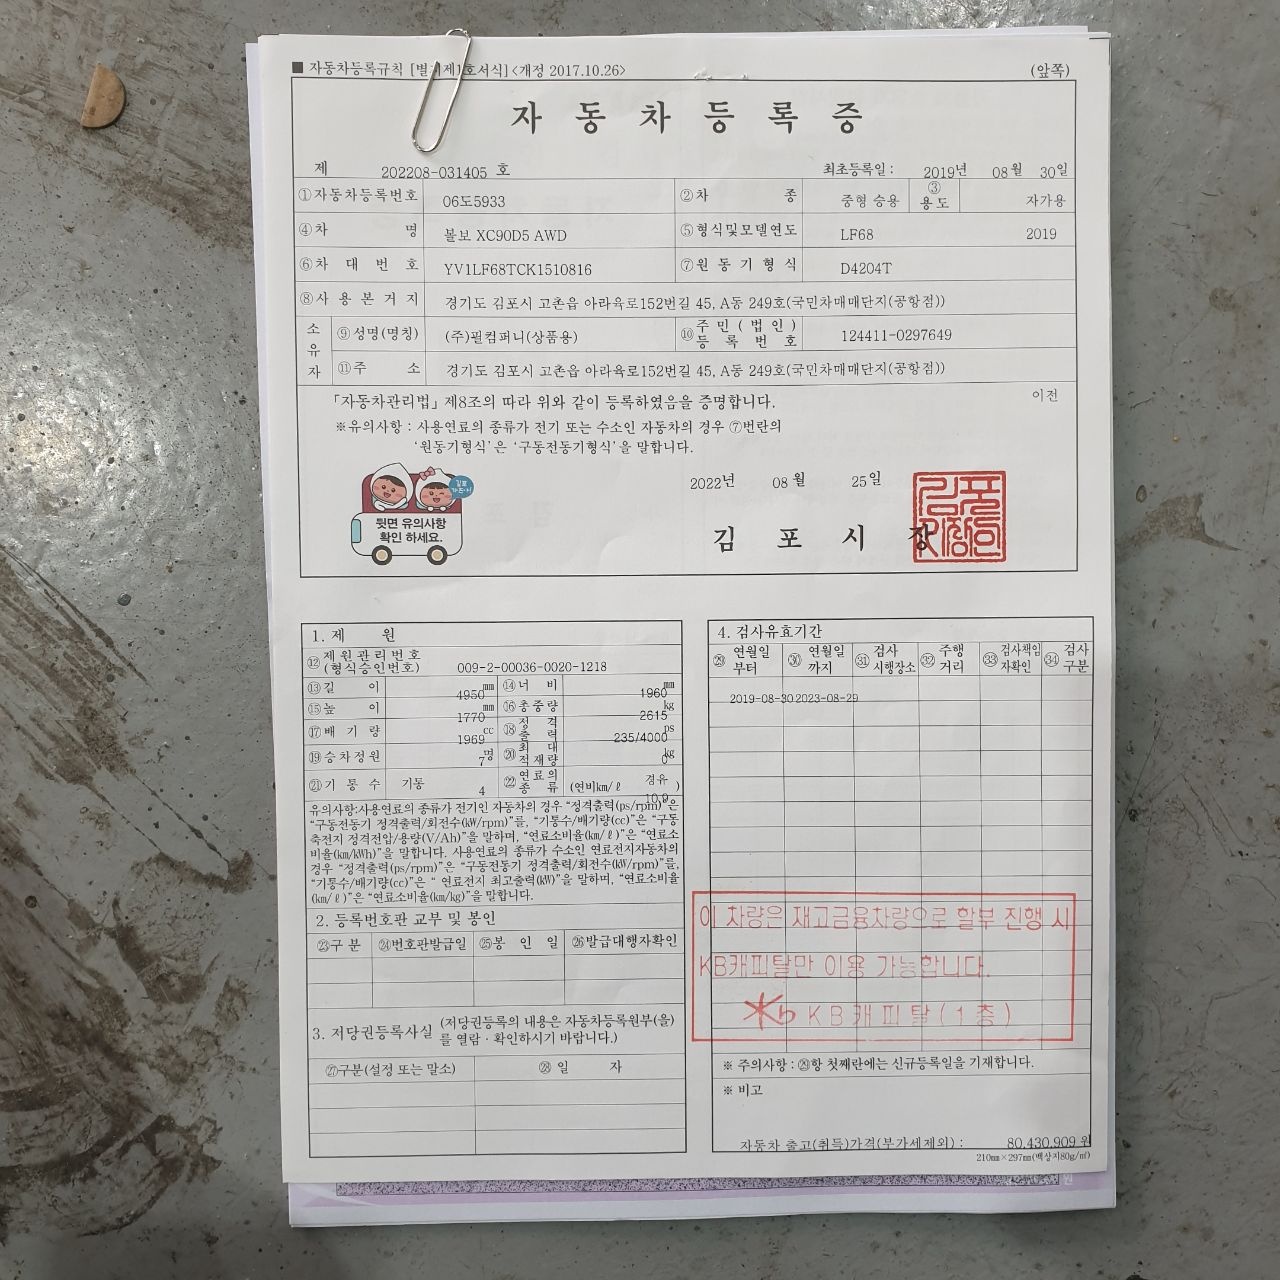 ■ 자동차등록규칙 [별지제1호서식] <개정 2017.10.26>
(앞쪽)
자 동 차 등 록 증
제 202208-031405 호
최초등록일 : 2019년 08월 30일
①자동차등록번호 06도5933 ②차 종 중형 승용 ③용도 자가용
④차 명 볼보 XC90D5 AWD ⑤형식및모델연도 LF68 2019
⑥차 대 번 호 YV1LF68TCK1510816 ⑦원 동 기 형 식 D4204T
⑧사 용 본 거 지 경기도 김포시 고촌읍 아라육로152번길 45, A동 249호(국민차매매단지(공항점))
소유자 ⑨성명(명칭) (주)필컴퍼니(상품용) ⑩주민(법인)등록번호 124411-0297649
⑪주 소 경기도 김포시 고촌읍 아라육로152번길 45, A동 249호(국민차매매단지(공항점))
「자동차관리법」 제8조의 따라 위와 같이 등록하였음을 증명합니다.
이전
※유의사항 : 사용연료의 종류가 전기 또는 수소인 자동차의 경우 ⑦번란의
‘원동기형식’은 ‘구동전동기형식’을 말합니다.
2022년 08월 25일
뒷면 유의사항
확인 하세요.
김 포 시 장
1. 제 원
⑫제원관리번호
(형식승인번호) 009-2-00036-0020-1218
⑬길 이 4950㎜ ⑭너 비 1960㎜
⑮높 이 1770㎜ ⑯총중량 2615kg
⑰배 기 량 1969cc ⑱정격출력 235/4000ps
⑲승차정원 7명 ⑳최대적재량 0kg
㉑기 통 수 기통 4 ㉒연료의종류 경유 (연비km/ℓ 10.9)
유의사항:사용연료의 종류가 전기인 자동차의 경우 “정격출력(ps/rpm)”은
“구동전동기 정격출력/회전수(kW/rpm)”를, “기통수/배기량(cc)”은 “구동
축전지 정격전압/용량(V/Ah)”을 말하며, “연료소비율(km/ℓ)”은 “연료소
비율(km/kWh)”을 말합니다. 사용연료의 종류가 수소인 연료전지자동차의
경우 “정격출력(ps/rpm)”은 “구동전동기 정격출력/회전수(kW/rpm)”를,
“기통수/배기량(cc)”은 “ 연료전지 최고출력(kW)”을 말하며, “연료소비율
(km/ℓ)”은 “연료소비율(km/kg)”을 말합니다.
2. 등록번호판 교부 및 봉인
㉓구 분 ㉔번호판발급일 ㉕봉 인 일 ㉖발급대행자확인
3. 저당권등록사실 (저당권등록의 내용은 자동차등록원부(을)
를 열람 · 확인하시기 바랍니다.)
㉗구분(설정 또는 말소) ㉘일 자
4. 검사유효기간
㉙연월일부터 ㉚연월일까지 ㉛검사시행장소 ㉜주행거리 ㉝검사책임자확인 ㉞검사구분
2019-08-30 2023-08-29
이 차량은 재고금융차량으로 할부 진행 시
KB캐피탈만 이용 가능합니다.
KB캐피탈(1층)
※ 주의사항 : ㉙항 첫째란에는 신규등록일을 기재합니다.
※ 비고
자동차 출고(취득)가격(부가세제외) : 80,430,909 원
210㎜×297㎜(백상지80g/㎡)